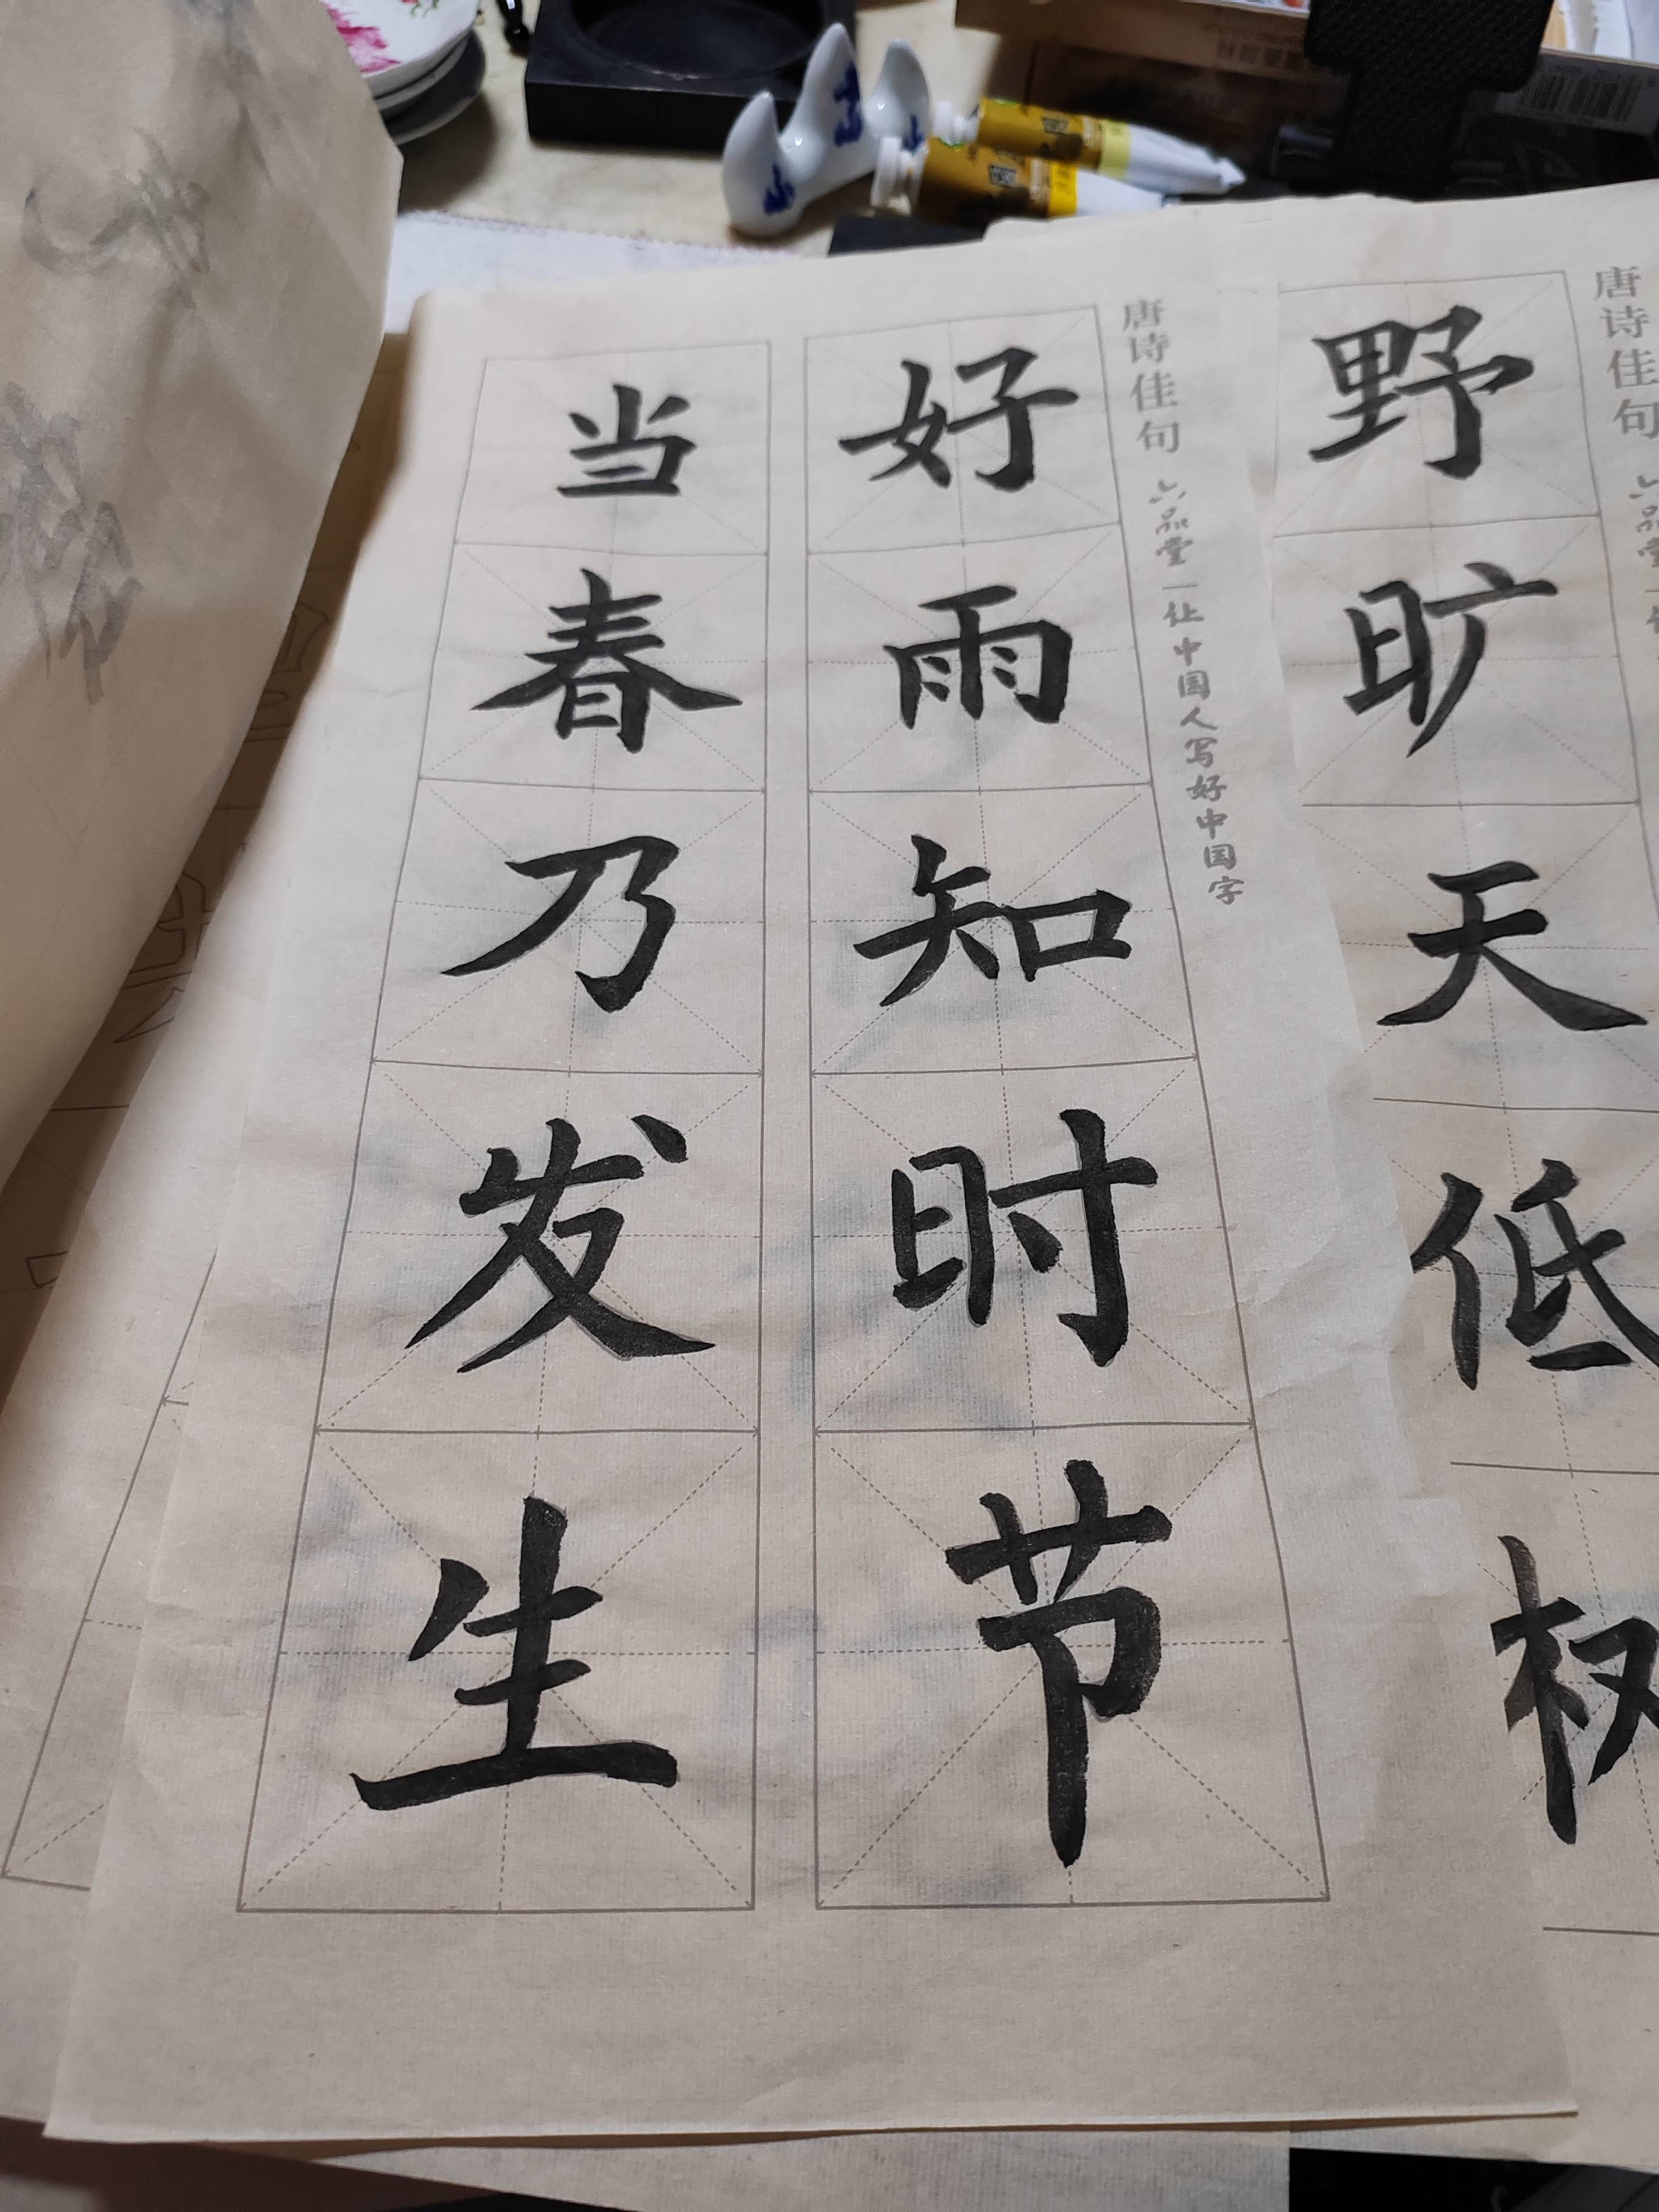 唐诗佳句
野旷天低树
唐诗佳句 六品堂—让中国人写好中国字
好雨知时节
当春乃发生